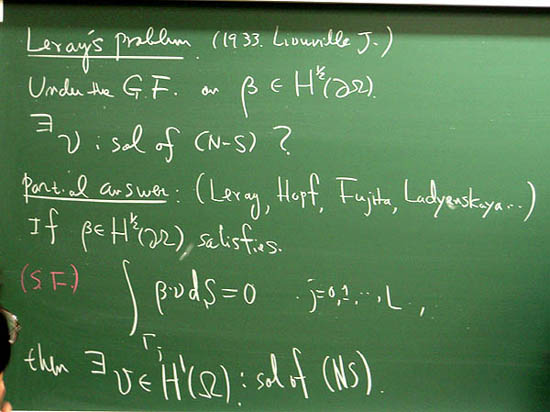 Leray's problem (1933. Liouville J.)
Under the G.F. on β ∈ H^{1/2}(∂Ω).
∃ v : sol of (N-S) ?
partial answer : (Leray, Hopf, Fujita, Ladyenskaya...)
If β∈H^{1/2}(∂Ω) satisfies.
(S.F.) ∫_{Γ_j} β·ν dS = 0 j=0,1,...,L,
then ∃ v ∈ H^1(Ω) : sol of (NS).